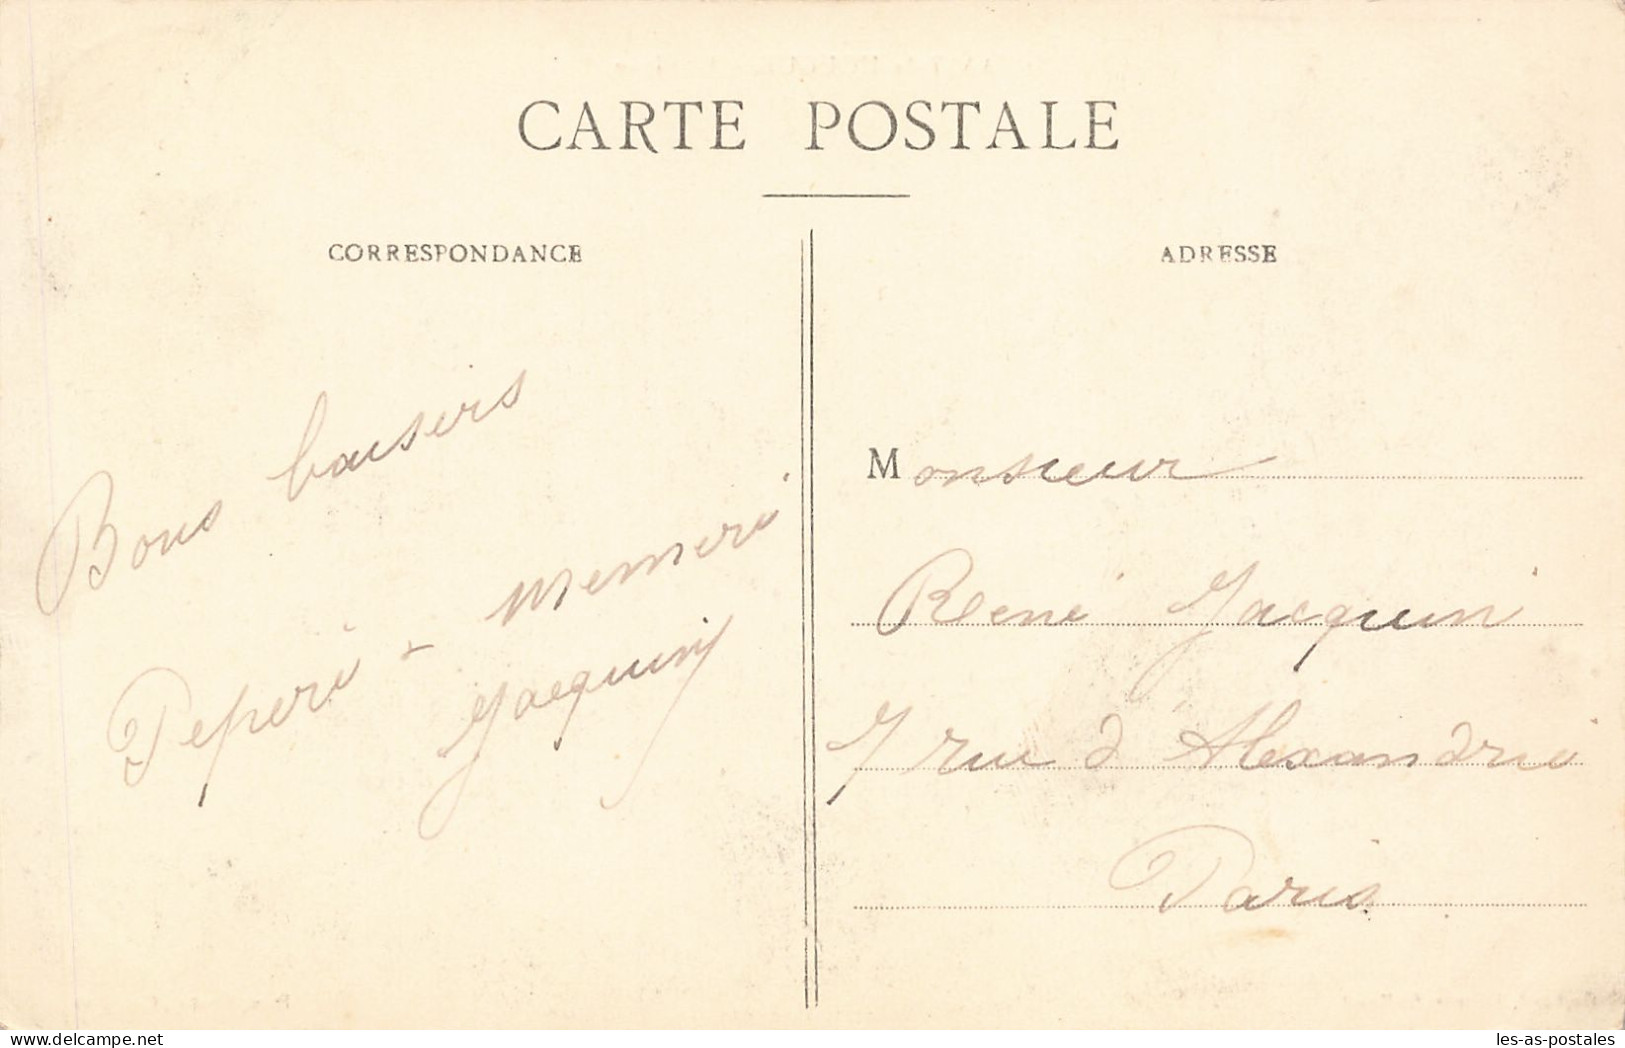 CARTE POSTALE
CORRESPONDANCE
Bons baisers
Peperi - memeri
Jacquin
ADRESSE
Monsieur
René Jacquin
7 rue d'Alexandrie
Paris
delcampe.net
les-as-postales